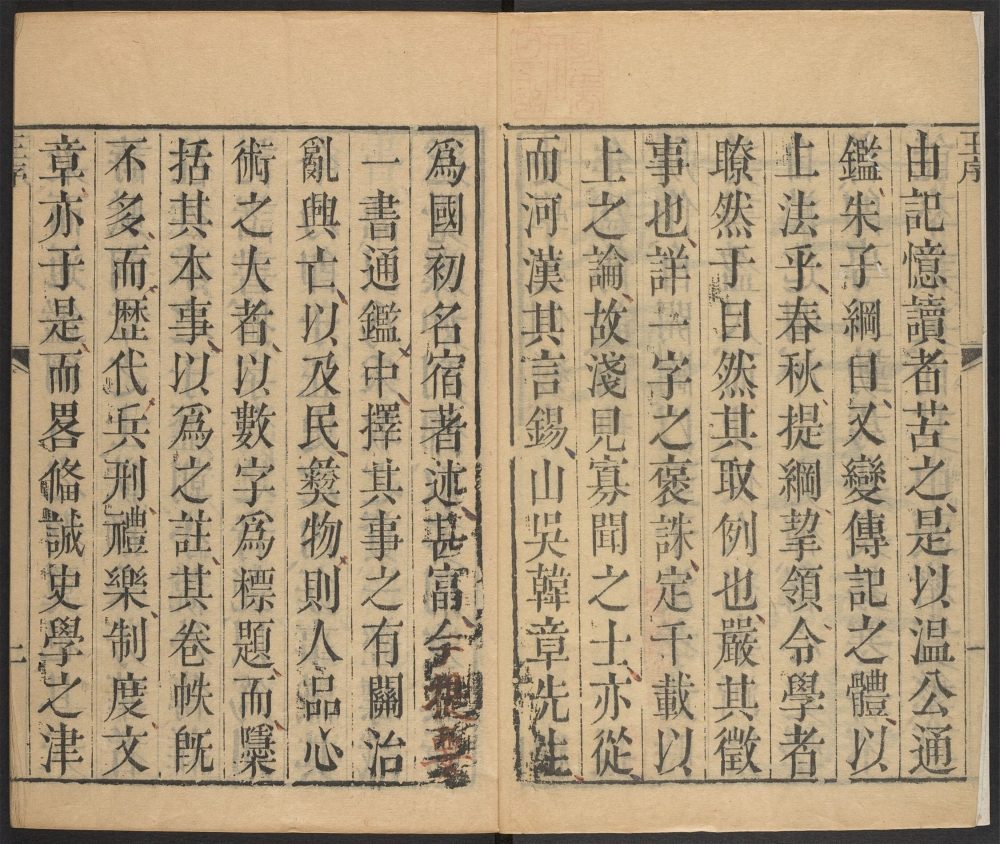 由記憶讀者苦之是以温公通
鑑朱子綱目又變傳記之體以
上法乎春秋提綱挈領令學者
瞭然于目然其取例也嚴其徵
事也詳一字之褒誅定千載以
上之論故淺見寡聞之士亦從
而河漢其言錫山吳韓章先生
爲國初名宿著述甚富今
一書通鑑中擇其事之有關治
亂興亡以及民彝物則人品心
術之大者以數字爲標題而櫽
括其本事以爲之註其卷帙旣
不多而歷代兵刑禮樂制度文
章亦于是而畧俻誠史學之津